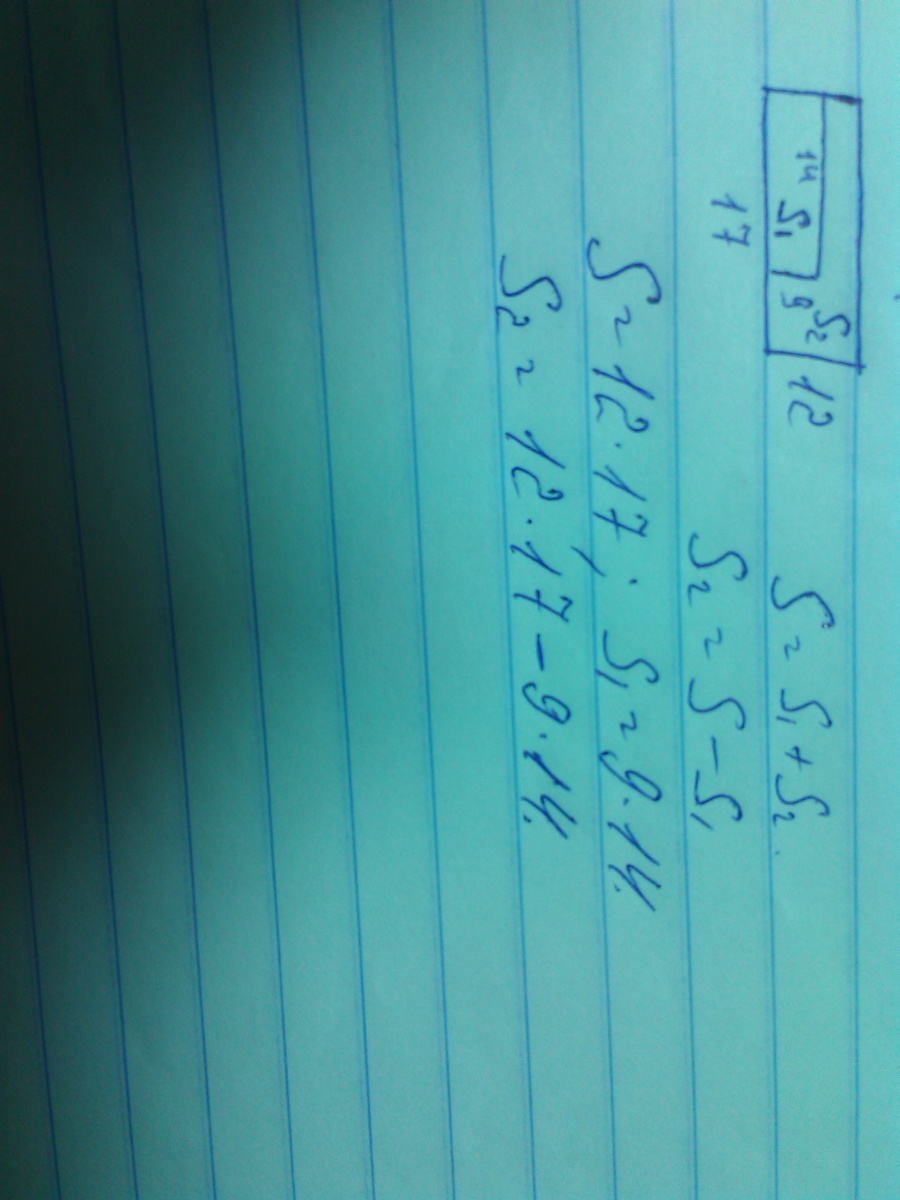 14 S₁
9 S₂
12
17
S = S₁ + S₂.
S₂ = S - S₁
S = 12·17; S₁ = 9·14.
S₂ = 12·17 - 9·14.